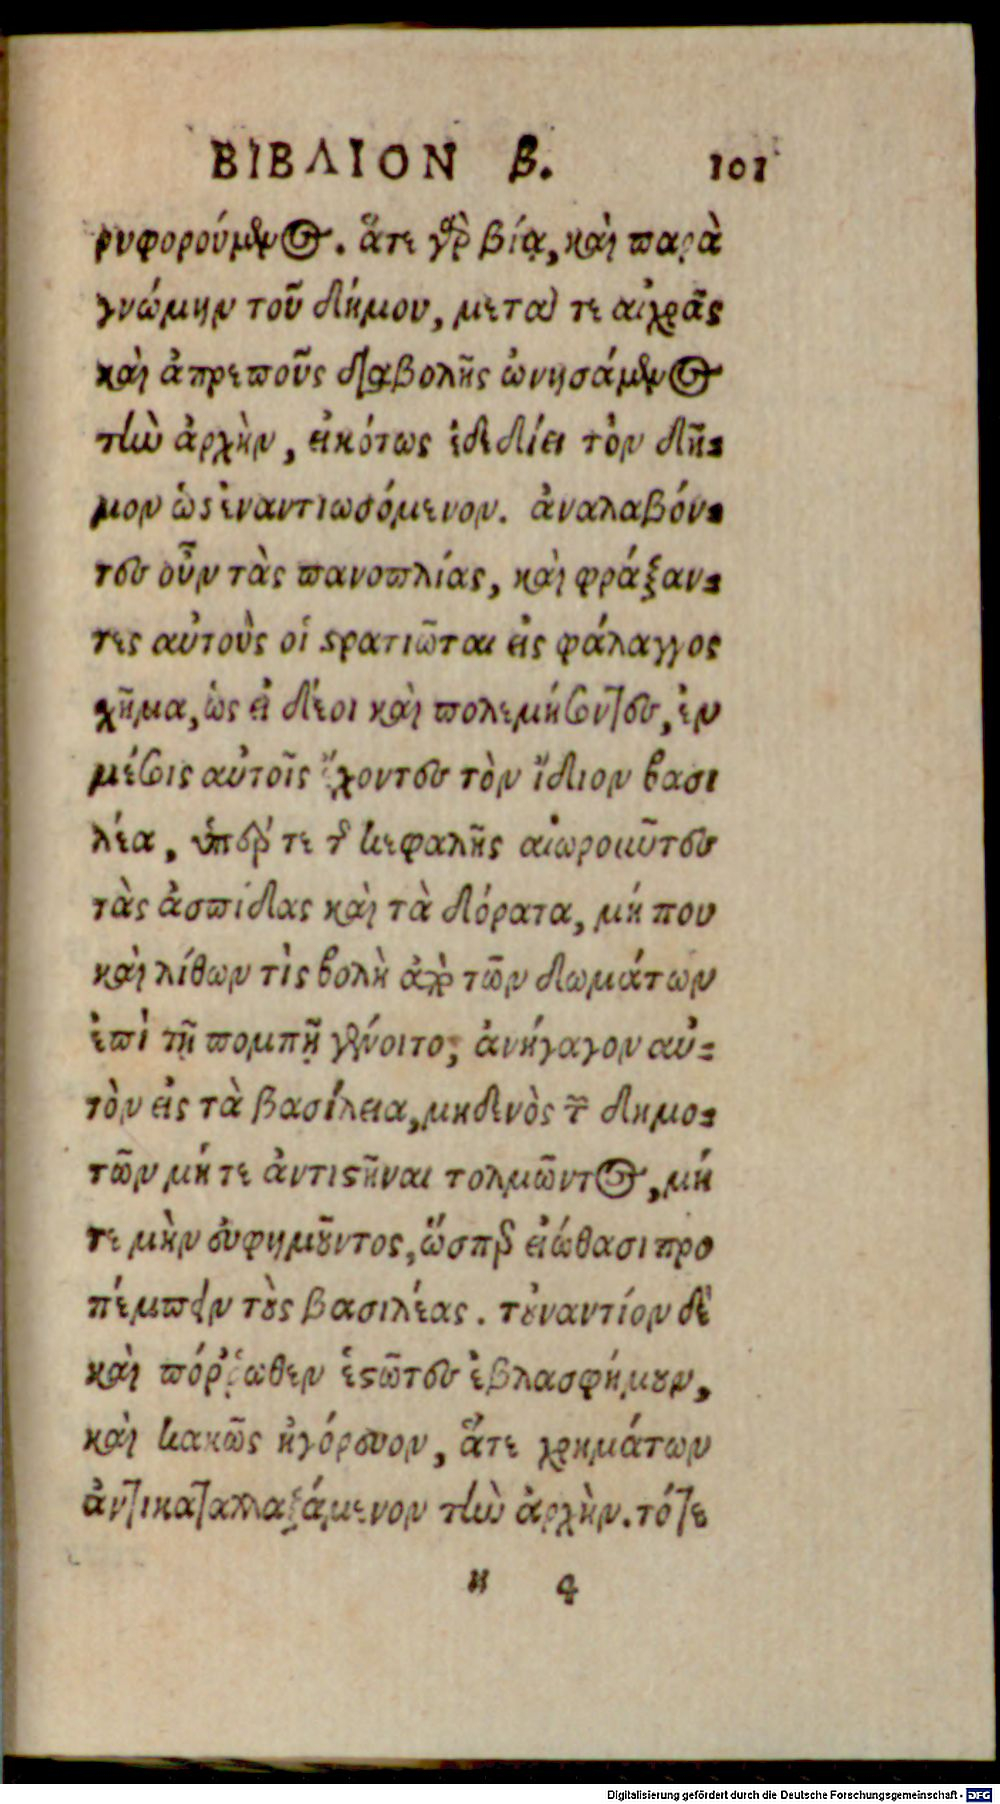 ΒΙΒΛΙΟΝ β. 101
ρυφορούμενος. ἅτε γὰρ βίᾳ, καὶ παρὰ
γνώμην τοῦ δήμου, μετά τε αἰσχρᾶς
καὶ ἀπρεποῦς διαβολῆς ὠνησάμενος
τὴν ἀρχὴν, εἰκότως ἐδεδίει τὸν δῆ-
μον ὡς ἐναντιωσόμενον. ἀναλαβόν-
τες οὖν τὰς πανοπλίας, καὶ φράξαν-
τες αὑτοὺς οἱ στρατιῶται εἰς φάλαγγος
σχῆμα, ὡς εἰ δέοι καὶ πολεμήσοντες, ἐν
μέσοις αὑτοῖς ἔχοντες τὸν ἴδιον βασι
λέα, ὑπέρ τε τῆς κεφαλῆς αἰωροῦντες
τὰς ἀσπίδας καὶ τὰ δόρατα, μή που
καὶ λίθων τὶς βολὴ ἀπὸ τῶν δωμάτων
ἐπὶ τῇ πομπῇ γένοιτο, ἀνήγαγον αὐ-
τὸν εἰς τὰ βασίλεια, μηδενὸς τῶν δημο-
τῶν μήτε ἀντιστῆναι τολμῶντος, μή
τε μὴν εὐφημοῦντος, ὥσπερ εἰώθασι προ
πέμπειν τοὺς βασιλέας. τοὐναντίον δὲ
καὶ πόῤῥωθεν ἑστῶτες ἐβλασφήμουν,
καὶ κακῶς ἠγόρευον, ἅτε χρημάτων
ἀντικαταλλαξάμενον τὴν ἀρχὴν. τότε
н 4
Digitalisierung gefördert durch die Deutsche Forschungsgemeinschaft - DFG